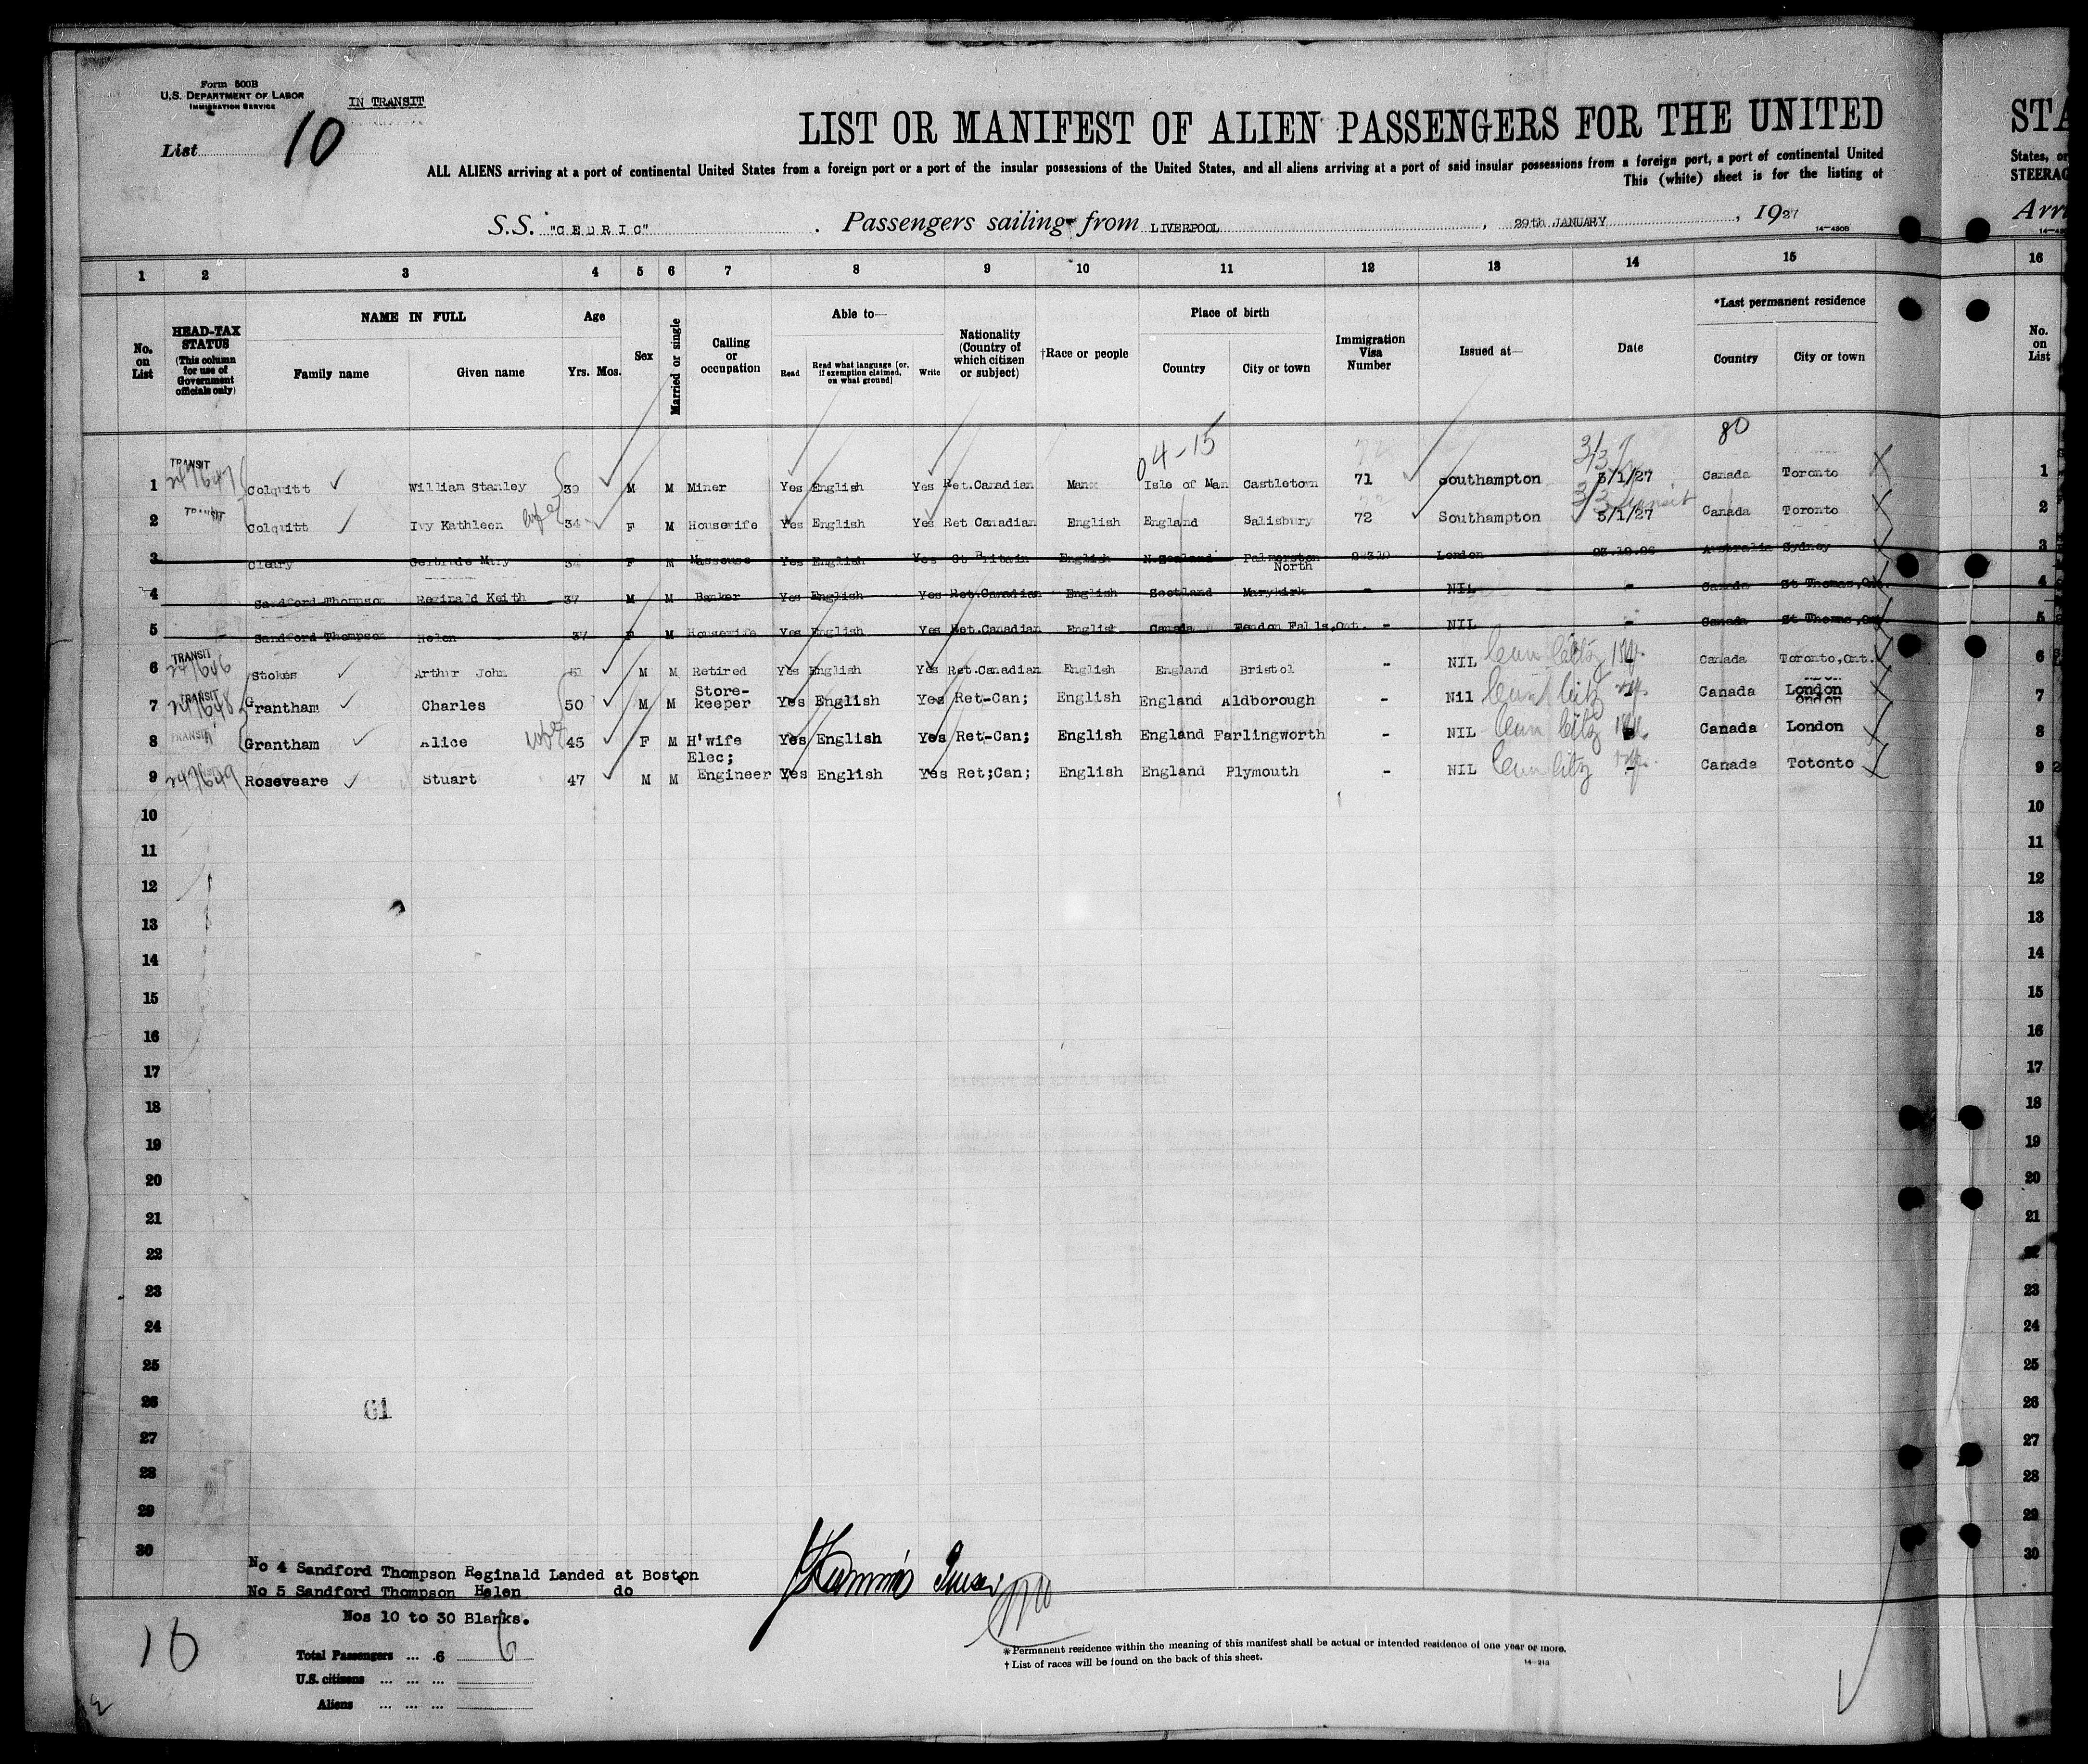 Form 500B
U.S. DEPARTMENT OF LABOR
IMMIGRATION SERVICE
IN TRANSIT
List 10
LIST OR MANIFEST OF ALIEN PASSENGERS FOR THE UNITED
STA
ALL ALIENS arriving at a port of continental United States from a foreign port or a port of the insular possessions of the United States, and all aliens arriving at a port of said insular possessions from a foreign port, a port of continental United
States, or
This (white) sheet is for the listing of
STEERAG
S.S. "CEDRIC" . Passengers sailing from LIVERPOOL , 29th JANUARY , 1927
Arri
14—430B
1 2 3 4 5 6 7 8 9 10 11 12 13 14 15 16
No. on List
HEAD-TAX STATUS (This column for use of Government officials only)
NAME IN FULL
Family name Given name
Age
Yrs. Mos.
Sex
Married or single
Calling or occupation
Able to—
Read Read what language [or, if exemption claimed, on what ground] Write
Nationality (Country of which citizen or subject)
†Race or people
Place of birth
Country City or town
Immigration Visa Number
Issued at—
Date
*Last permanent residence
Country City or town
No. on List
04-15 80
1 TRANSIT 247647 Colquitt William Stanley 39 M M Miner Yes English Yes Ret.Canadian Manx Isle of Man Castletown 71 Southampton 3/1/27 Canada Toronto 1
2 TRANSIT Colquitt Ivy Kathleen wife 34 F M Housewife Yes English Yes Ret Canadian English England Salisbury 72 Southampton 3/1/27 Canada Toronto 2
3 Cleary Gertrude Mary 34 F M Masseuse Yes English Yes Gt Britain English N.Zealand Palmerston North London Australia Sydney 3
4 Sandford-Thompson Reginald Keith 37 M M Banker Yes English Yes Ret.Canadian English Scotland Marykirk - NIL - Canada St Thomas,Ont. 4
5 Sandford Thompson Helen 37 F M Housewife Yes English Yes Ret.Canadian English Canada Fendon Falls,Ont. - NIL - Canada St Thomas,Ont 5
6 TRANSIT 247646 Stokes Arthur John 51 M M Retired Yes English Yes Ret.Canadian English England Bristol - NIL Can Citz Canada Toronto,Ont. 6
7 TRANSIT 247648 Grantham Charles 50 M M Store-keeper Yes English Yes Ret-Can; English England Aldborough - Nil Can Citz Canada London 7
8 TRANSIT Grantham Alice wife 45 F M H'wife Yes English Yes Ret-Can; English England Farlingworth - NIL Can Citz Canada London 8
9 247649 Roseveare Stuart 47 M M Elec; Engineer Yes English Yes Ret;Can; English England Plymouth - NIL Can Citz - Canada Totonto 9
10 10
11 11
12 12
13 13
14 14
15 15
16 16
17 17
18 18
19 19
20 20
21 21
22 22
23 23
24 24
25 25
26 61 26
27 27
28 28
29 29
30 30
No 4 Sandford Thompson Reginald Landed at Boston
No 5 Sandford Thompson Helen do
Nos 10 to 30 Blanks.
10
Total Passengers ... .6 6
U.S. citizens ... ... ...
Aliens ... ... ...
*Permanent residence within the meaning of this manifest shall be actual or intended residence of one year or more.
†List of races will be found on the back of this sheet.
14—213